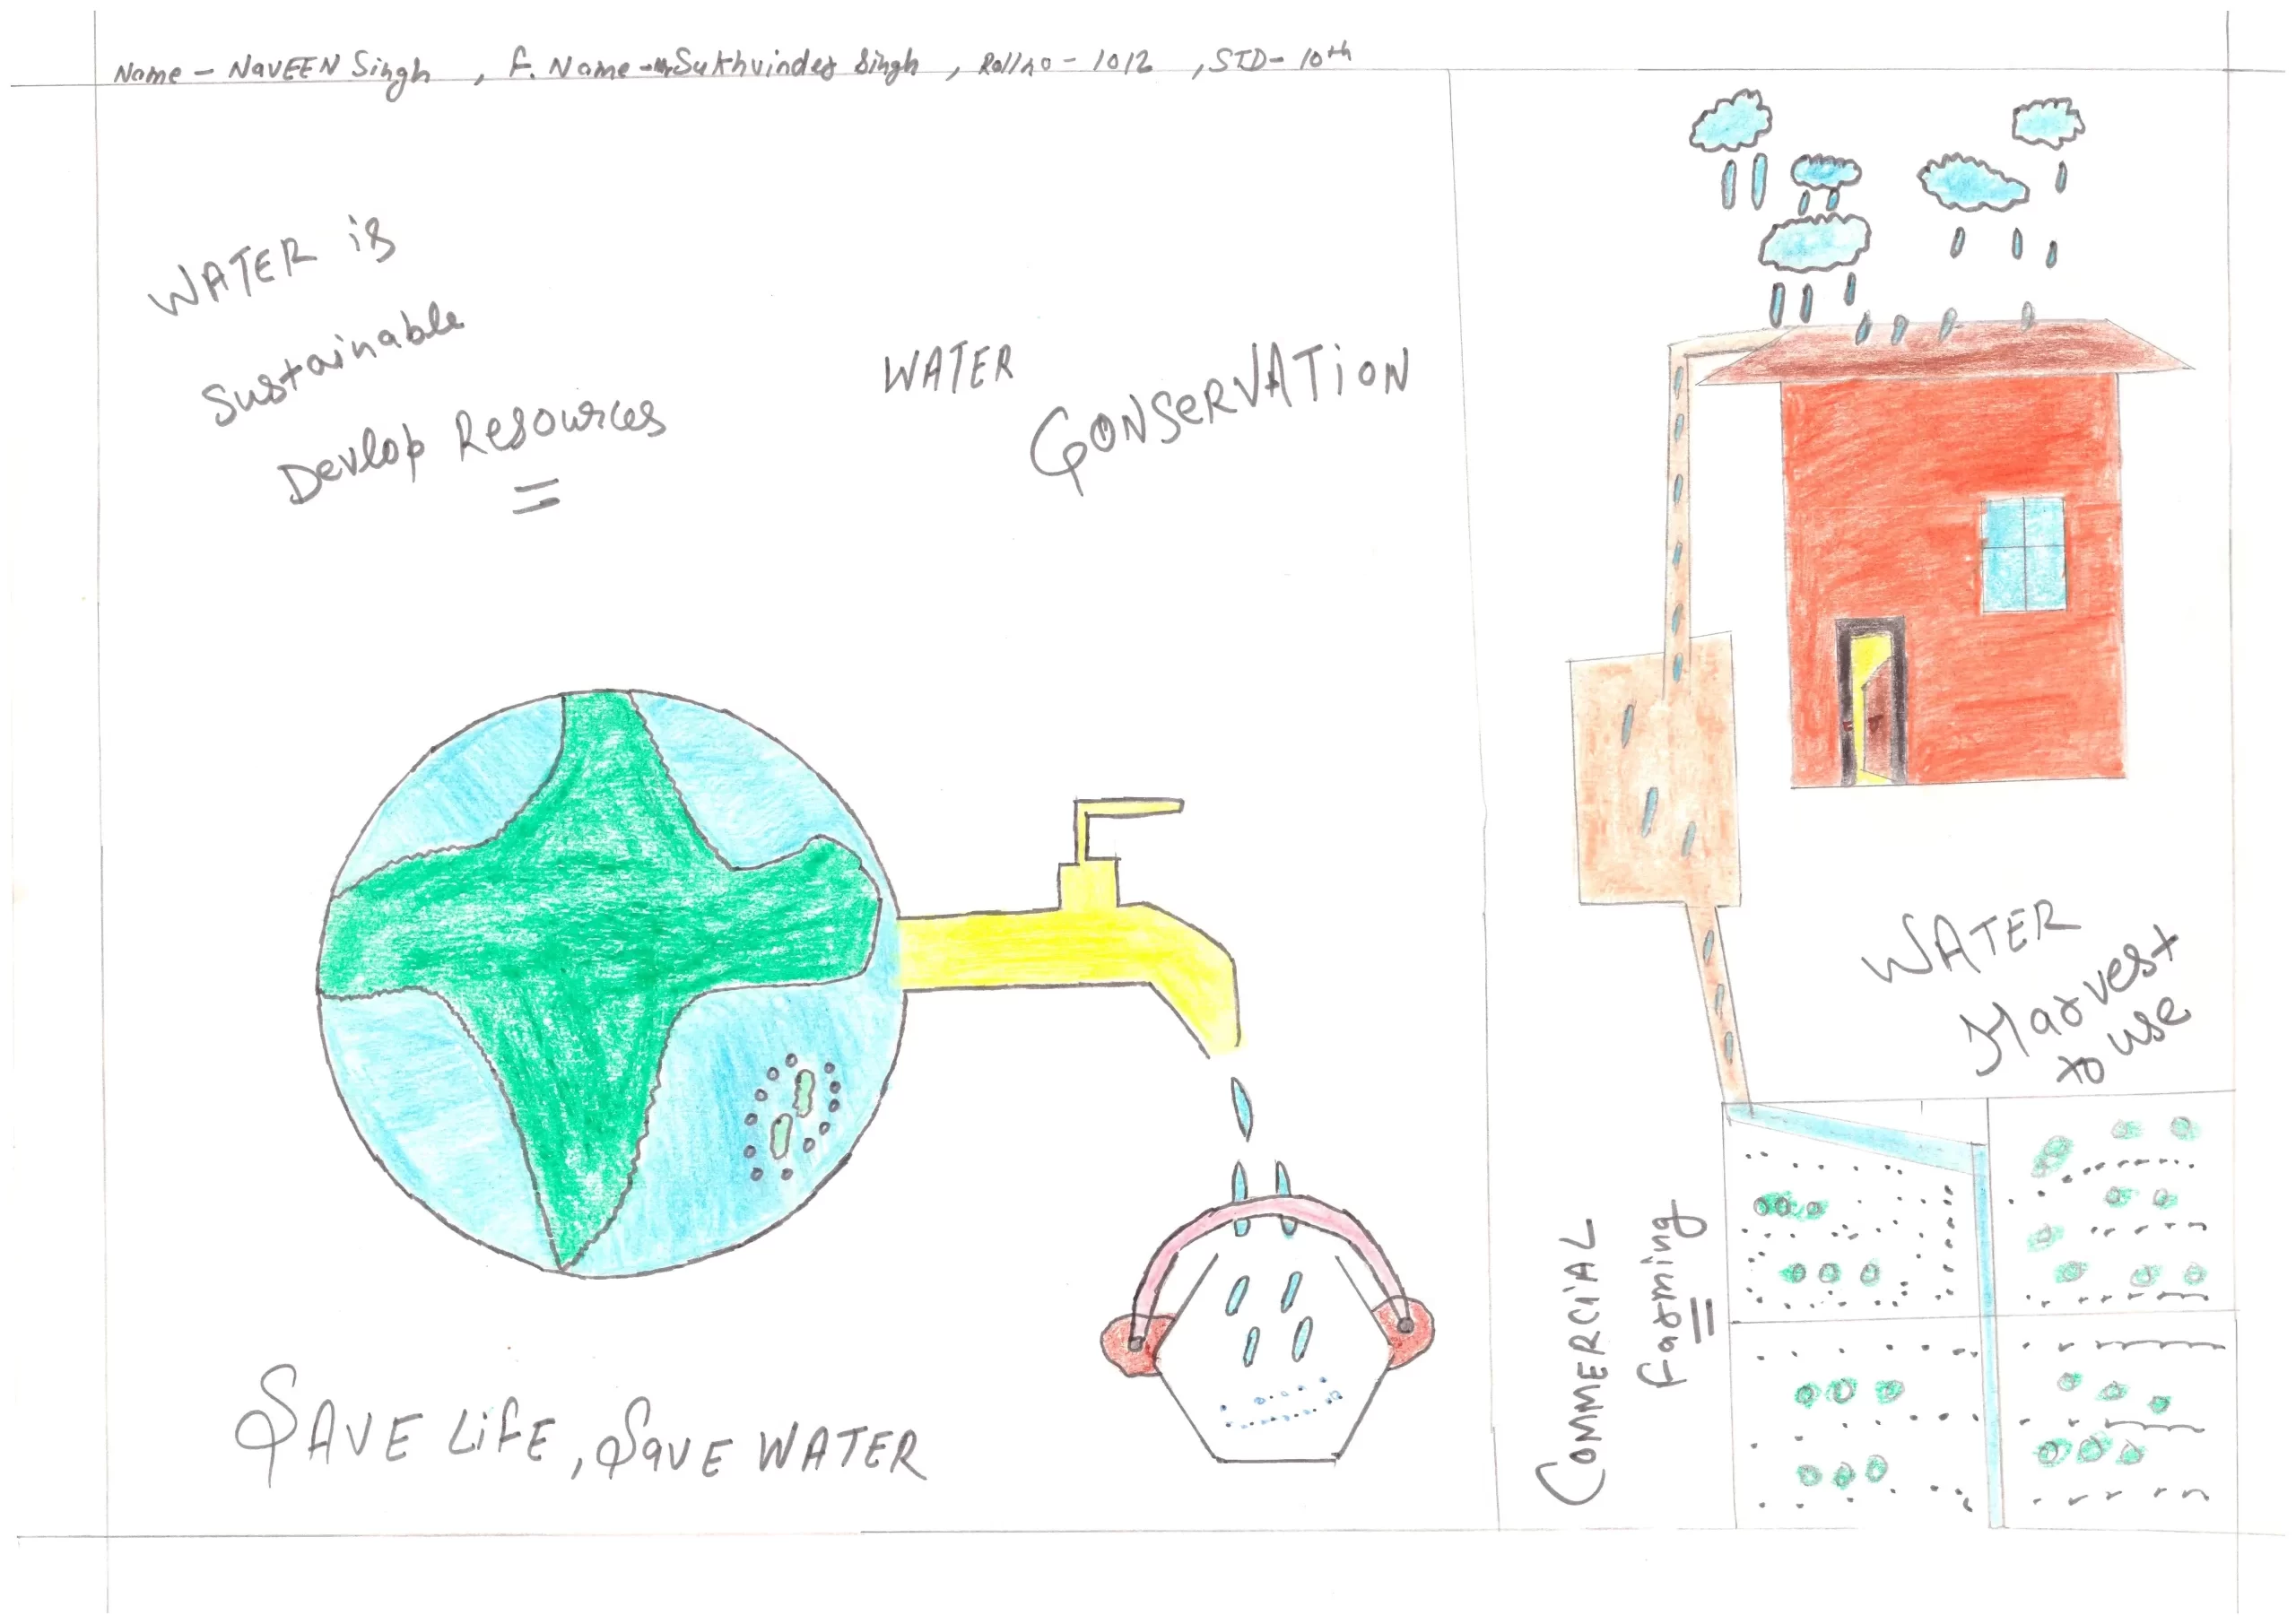 Name - NavEEN Singh , F. Name - Mr Sukhvinder Singh , Roll no - 1012 , STD - 10th
WATER is
Sustainable
Devlop Resources
WATER
CONSERVATION
SAVE LiFE, SavE WATER
WATER
Harvest
to use
COMMERCIAL
Farming